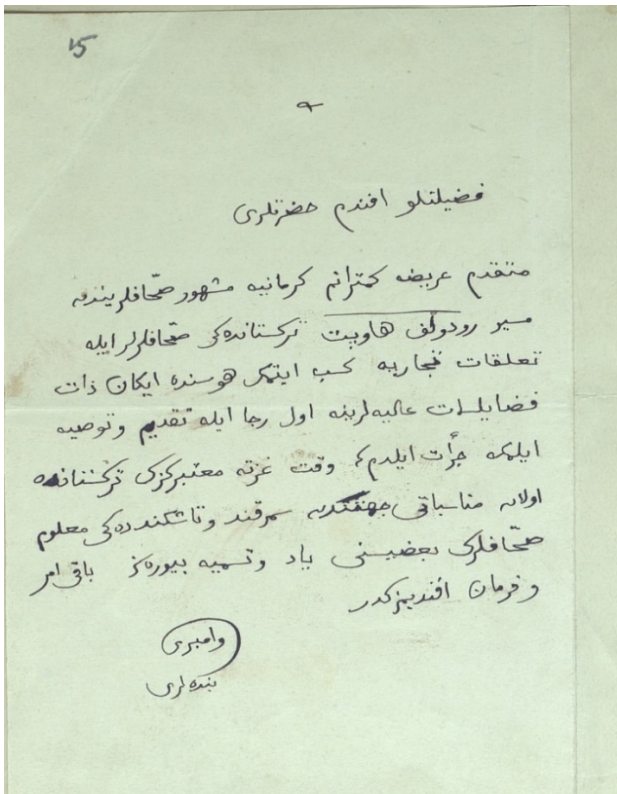 15
فضيلتلو افندم حضرتلرى
متقدم عريضۀ كمترانم كرمانيه مشهور صحّافلريندن
مسير رودولف هاوپت تركستانده كى صحّافلر ايله
تعلقات تجاريه كسب ايتمك هوسنده ايكان ذات
فضايلسات عاليه لرينه اول رجا ايله تقديم و توصيه
ايلمكه جرأت ايلدم كه وقت غزته معتبركزك تركستانده
اولان مناسباتى جهتندن سمرقند و تاشكندده كى معلوم
صحّافلرك بعضيسنى ياد و تسميه بيوره كز باقى امر
و فرمان افنديمزكدر
وامبرى
بنده لرى